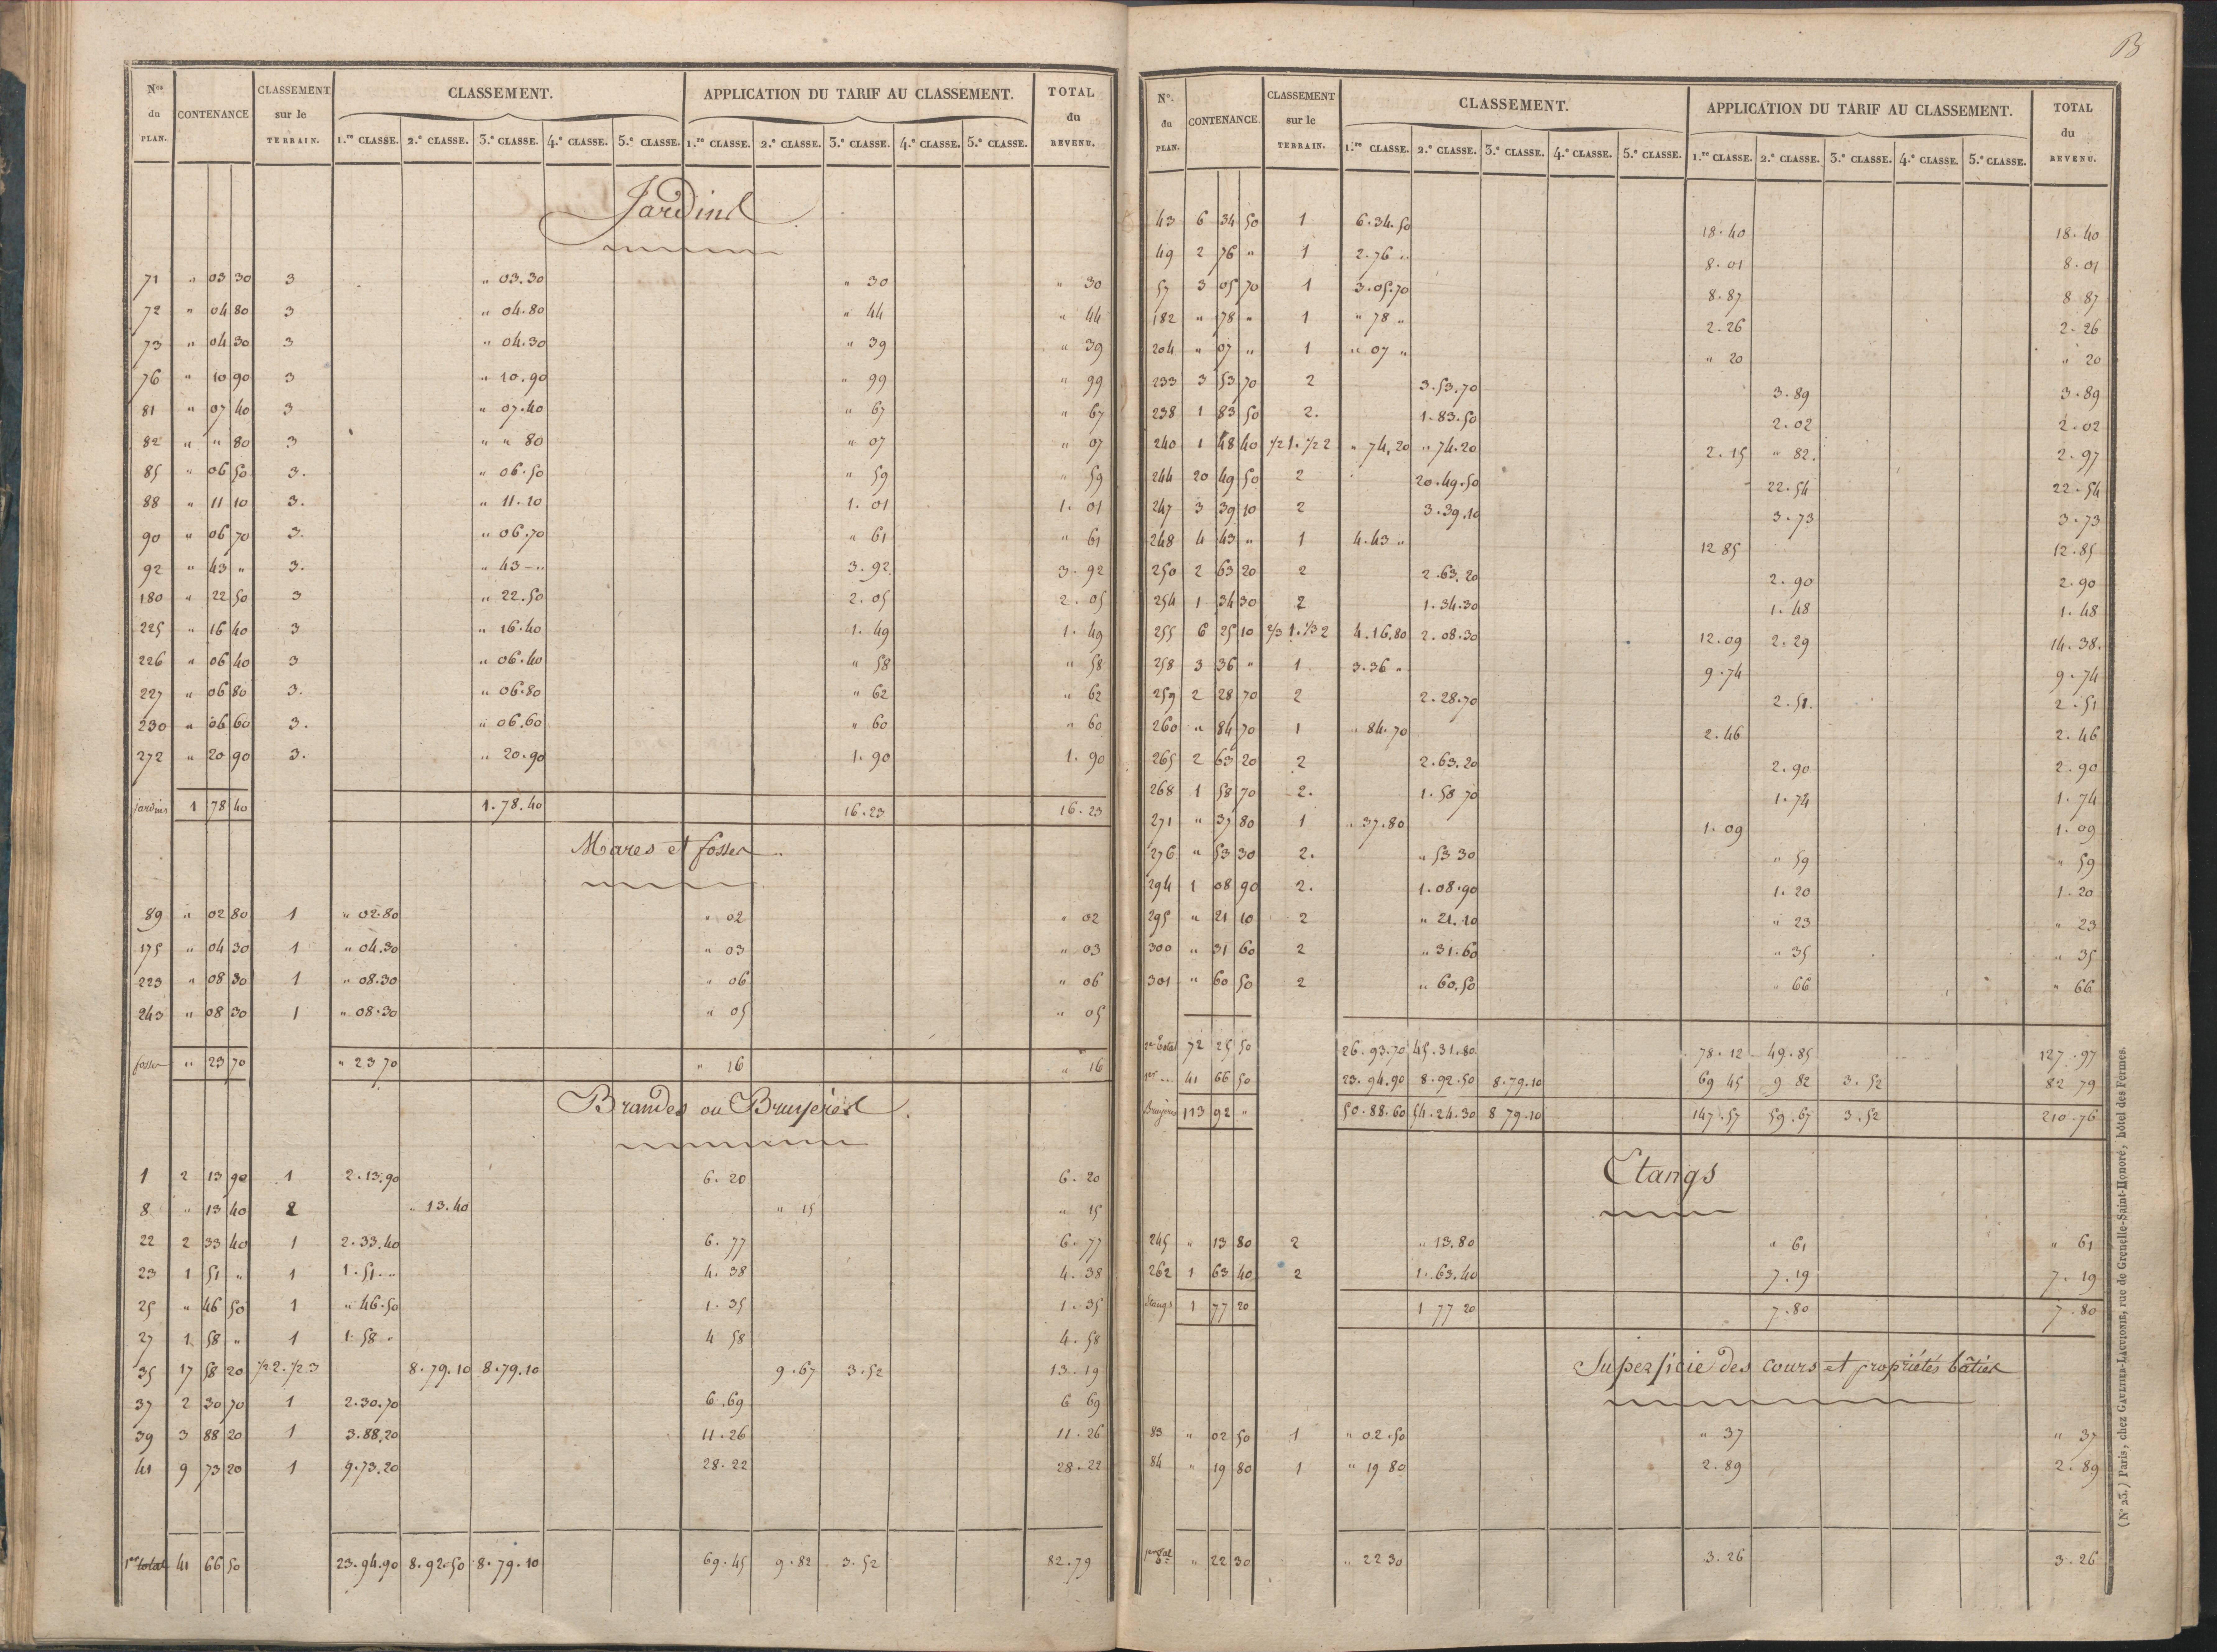 Nos du PLAN. CONTENANCE CLASSEMENT sur le TERRAIN. CLASSEMENT. APPLICATION DU TARIF AU CLASSEMENT. TOTAL du REVENU.
1.re CLASSE. 2.e CLASSE. 3.e CLASSE. 4.e CLASSE. 5.e CLASSE. 1.re CLASSE. 2.e CLASSE. 3.e CLASSE. 4.e CLASSE. 5.e CLASSE.
Jardins
71 " 03 30 3 " 03.30 " 30 " 30
72 " 04 80 3 " 04.80 " 44 " 44
73 " 04 30 3 " 04.30 " 39 " 39
76 " 10 90 3 " 10.90 " 99 " 99
81 " 07 40 3 " 07.40 " 67 " 67
82 " " 80 3 " " 80 " 07 " 07
85 " 06 50 3. " 06.50 " 59 " 59
88 " 11 10 3. " 11.10 1. 01 1. 01
90 " 06 70 3. " 06.70 " 61 " 61
92 " 43 " 3. " 43 - " 3. 92 3. 92
180 " 22 50 3 " 22.50 2. 05 2. 05
225 " 16 40 3 " 16.40 1. 49 1. 49
226 " 06 40 3 " 06.40 " 58 " 58
227 " 06 80 3. " 06.80 " 62 " 62
230 " 06 60 3. " 06.60 " 60 " 60
272 " 20 90 3. " 20.90 1. 90 1. 90
jardins 1 78 40 1.78.40 16.23 16.23
Mares et fosses
89 " 02 80 1 " 02.80 " 02 " 02
175 " 04 30 1 " 04.30 " 03 " 03
223 " 08 30 1 " 08.30 " 06 " 06
243 " 08 30 1 " 08.30 " 05 " 05
fosses " 23 70 " 23 70 " 16 " 16
Brandes ou Bruyères
1 2 13 90 1 2.13.90 6. 20 6. 20
8 " 13 40 2 " 13.40 " 15 " 15
22 2 33 40 1 2.33.40 6. 77 6. 77
23 1 51 " 1 1.51. " 4. 38 4. 38
25 " 46 50 1 " 46.50 1. 35 1. 35
27 1 58 " 1 1.58 " 4 58 4. 58
35 17 58 20 1/2 2. 1/2 3 8.79.10 8.79.10 9.67 3.52 13.19
37 2 30 70 1 2.30.70 6.69 6 69
39 3 88 20 1 3.88.20 11.26 11.26
41 9 73 20 1 9.73.20 28.22 28.22
1er total 41 66 50 23.94.90 8.92.50 8.79.10 69.45 9.82 3.52 82.79
B
No. du PLAN. CONTENANCE. CLASSEMENT sur le TERRAIN. CLASSEMENT. APPLICATION DU TARIF AU CLASSEMENT. TOTAL du REVENU.
1.re CLASSE. 2.e CLASSE. 3.e CLASSE. 4.e CLASSE. 5.e CLASSE. 1.re CLASSE. 2.e CLASSE. 3.e CLASSE. 4.e CLASSE. 5.e CLASSE.
43 6 34 50 1 6.34.50 18.40 18.40
49 2 76 " 1 2.76 " 8.01 8.01
57 3 05 70 1 3.05.70 8.87 8 87
182 " 78 " 1 " 78 " 2.26 2.26
204 " 07 " 1 " 07 " " 20 " 20
233 3 53 70 2 3.53.70 3.89 3.89
238 1 83 50 2. 1.83.50 2.02 2.02
240 1 48 40 1/2 1. 1/2 2 " 74,20 " 74.20 2.15 " 82. 2.97
244 20 49 50 2 20.49.50 22.54 22.54
247 3 39 10 2 3.39.10 3.73 3.73
248 4 43 " 1 4.43 " 12 85 12.85
250 2 63 20 2 2.63.20 2.90 2.90
254 1 34 30 2 1.34.30 1.48 1.48
255 6 25 10 2/3 1. 1/3 2 4.16,80 2.08.30 12.09 2.29 14.38.
258 3 36 " 1 3.36 " 9.74 9.74
259 2 28 70 2 2.28.70 2.51. 2.51
260 " 84 70 1 " 84.70 2.46 2.46
265 2 63 20 2 2.63.20 2.90 2.90
268 1 58 70 2. 1.58 70 1.74 1.74
271 " 37 80 1 " 37.80 1.09 1.09
276 " 53 30 2. " 53 30 " 59 " 59
294 1 08 90 2. 1.08.90 1. 20 1.20
295 " 21 10 2 " 21.10 " 23 " 23
300 " 31 60 2 " 31.60 " 35 " 35
301 " 60 50 2 " 60.50 " 66 " 66
2e total 72 25 50 26.93.70 45.31.80 78.12 49.85 127.97
1er ... 41 66 50 23.94.90 8.92.50 8.79.10 69 45 9 82 3.52 82 79
Bruyères 113 92 " 50.88.60 54.24.30 8 79.10 147.57 59.67 3.52 210.76
Etangs
245 " 13 80 2 " 13.80 " 61 " 61
262 1 63 40 2 1.63.40 7.19 7.19
Etangs 1 77 20 1 77 20 7.80 7.80
Superficie des cours et propriétés bâties
83 " 02 50 1 " 02.50 " 37 " 37
84 " 19 80 1 " 19 80 2.89 2.89
" 22 30 " 22 30 3.26 3.26
(No 23.) Paris, chez GAULTIER-LAGUIONIE, rue de Grenelle-Saint-Honoré, hôtel des Fermes.